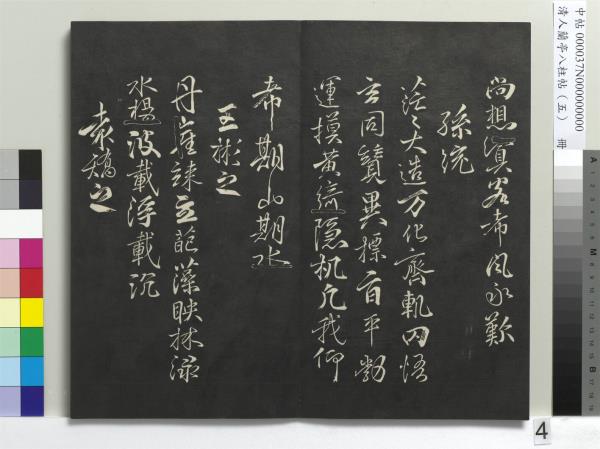 中帖 000037N000000000
清人蘭亭八柱帖（五） 冊
尚想賓客希風永歎
孫統
茫〻大造万化齊軌罔悟
玄同競異摽旨平勃
運摸黃綺隱机凡我仰
希期山期水
王彬之
丹崖竦立葩藻映林渌
水揚波載浮載沉
袁嶠之
4